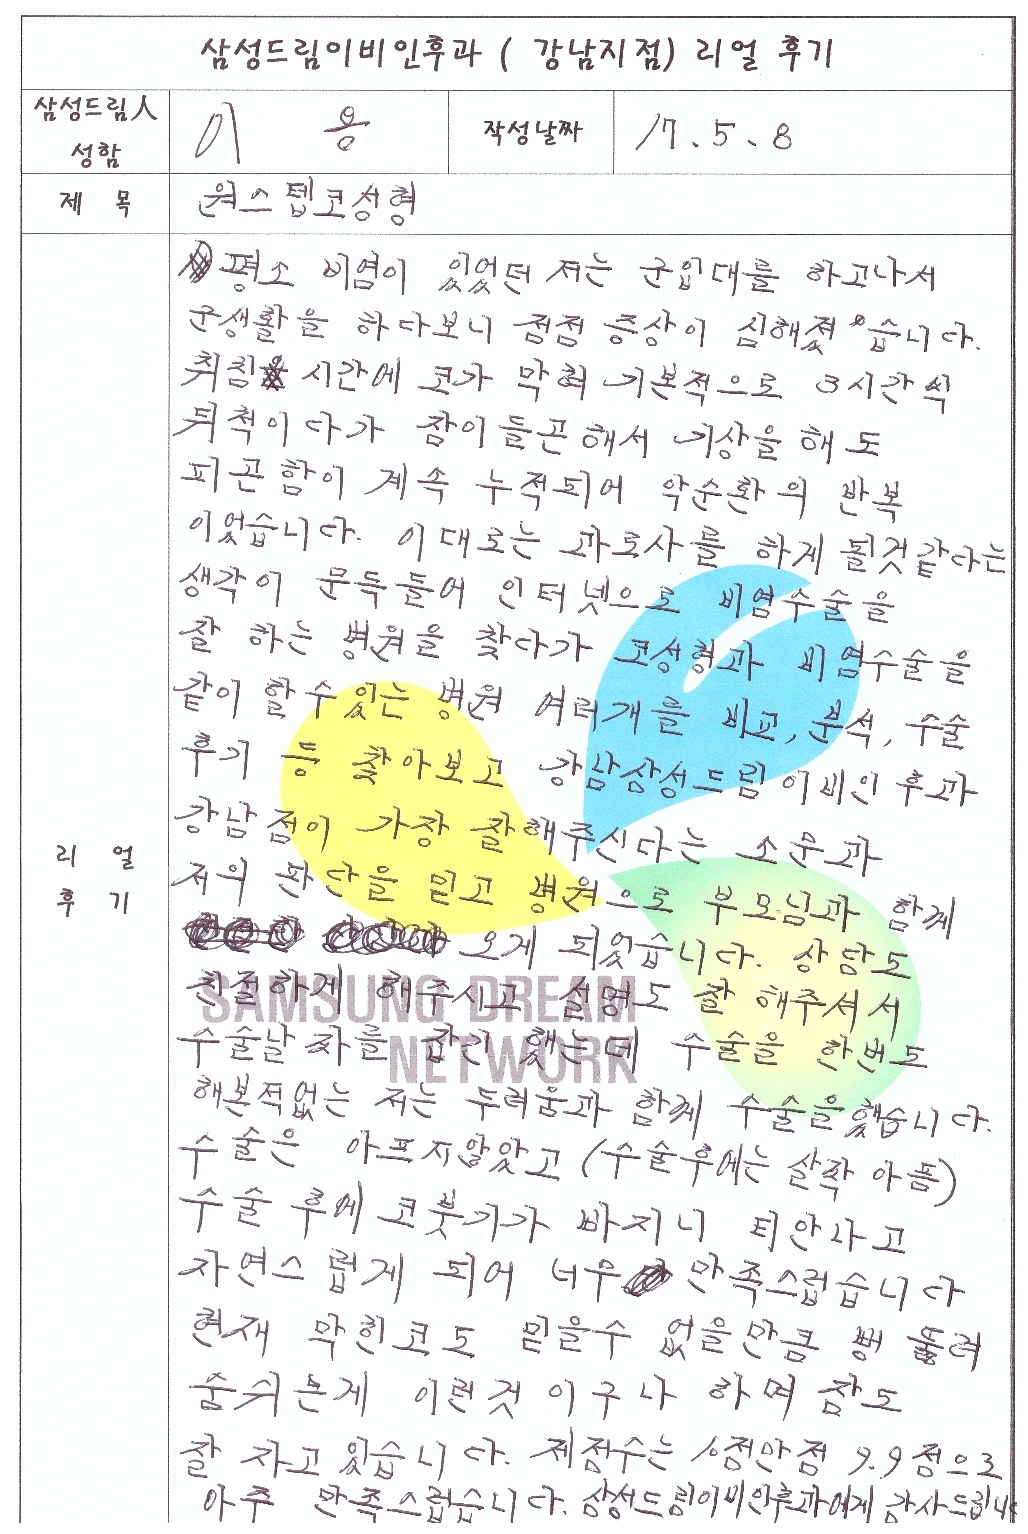 삼성드림이비인후과 ( 강남지점) 리얼 후기
삼성드림人 성함
이 용
작성날짜
17. 5. 8
제 목
원스텝코성형
리 얼 후 기
평소 비염이 있었던 저는 군입대를 하고나서
군생활을 하다보니 점점 증상이 심해졌습니다.
취침 시간에 코가 막혀 기본적으로 3시간씩
뒤척이다가 잠이들곤해서 기상을해도
피곤함이 계속 누적되어 악순환의 반복
이었습니다. 이대로는 과로사를 하게 될것같다는
생각이 문득들어 인터넷으로 비염수술을
잘 하는 병원을 찾다가 코성형과 비염수술을
같이 할수있는 병원 여러개를 비교, 분석, 수술
후기 등 찾아보고 강남삼성드림이비인후과
강남점이 가장 잘해주신다는 소문과
저의 판단을 믿고 병원으로 부모님과 함께
오게 되었습니다. 상담도
친절하게 해주시고 설명도 잘 해주셔서
SAMSUNG DREAM
NETWORK
수술날짜를 잡기 했는데 수술을 한번도
해본적없는 저는 두려움과 함께 수술을했습니다.
수술은 아프지않았고 (수술후에는 살짝 아픔)
수술 후에 코붓기가 빠지니 티안나고
자연스럽게 되어 너무 만족스럽습니다
현재 막힌코도 믿을수 없을만큼 뻥 뚫려
숨쉬는게 이런것이구나 하며 잠도
잘 자고 있습니다. 제점수는 10점만점 9.9점으로
아주 만족스럽습니다. 삼성드림이비인후과에게 감사드립니